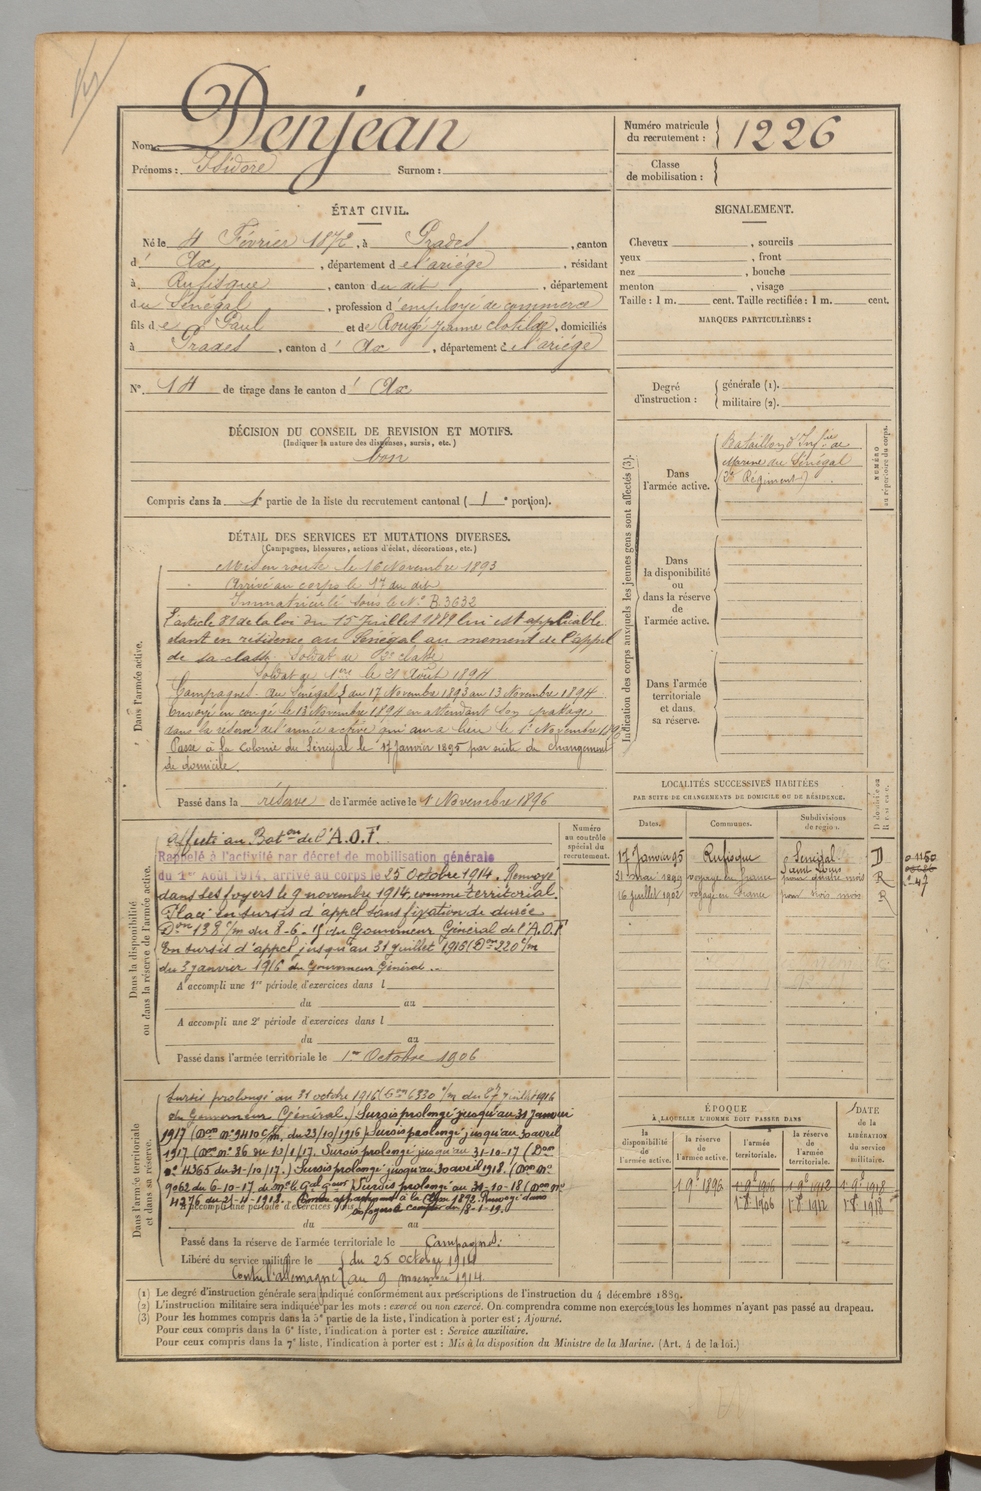 Nom : Denjean
Prénoms : Isidore Surnom :
Numéro matricule du recrutement : 1226
Classe de mobilisation :
ÉTAT CIVIL.
Né le 4 Février 1872, à Prades, canton
d' Ax, département de l'ariége, résidant
à Rufisque, canton du dit, département
du Sénégal, profession d'employé de commerce
fils de Paul et de Rougé jeanne clotilde, domiciliés
à Prades, canton d' Ax, département de l'ariége
N° 14 de tirage dans le canton d' Ax
DÉCISION DU CONSEIL DE REVISION ET MOTIFS.
(Indiquer la nature des dispenses, sursis, etc.)
bon
Compris dans la 1e partie de la liste du recrutement cantonal (1e portion).
DÉTAIL DES SERVICES ET MUTATIONS DIVERSES.
(Campagnes, blessures, actions d'éclat, décorations, etc.)
Dans l'armée active.
Mis en route le 16 Novembre 1893
Arrivé au corps le 17 du dit
Immatriculé sous le N° B.3632
L'article 81 de la loi du 15 Juillet 1889 lui est applicable
étant en résidence au Sénégal au moment de l'appel
de sa classe. Soldat de 2e classe
Soldat de 1ère le 21 Août 1894
Campagnes. Au Sénégal du 17 Novembre 1893 au 13 Novembre 1894
Envoyé en congé le 13 Novembre 1894 en attendant son passage
dans la réserve de l'armée active qui aura lieu le 1er Novembre 1896
Passé à la colonie du Sénégal le 17 janvier 1895 par suite de changement
de domicile.
Passé dans la réserve de l'armée active le 1 Novembre 1896
Dans la disponibilité ou dans la réserve de l'armée active.
Numéro au contrôle spécial du recrutement.
Affecté au Baton de l'A.O.F.
Rappelé à l'activité par décret de mobilisation générale
du 1er Août 1914, arrivé au corps le 25 Octobre 1914. Renvoyé
dans ses foyers le 9 novembre 1914, comme territorial.
Placé en sursis d'appel sans fixation de durée
Don 138 c/m du 8-6-15 du Gouverneur Général de l'A.O.F
En sursis d'appel jusqu'au 31 juillet 1916 (Don 220 c/m
du 3 janvier 1916 du Gouverneur Général.
A accompli une 1re période d'exercices dans l
du au
A accompli une 2e période d'exercices dans l
du au
Passé dans l'armée territoriale le 1er Octobre 1906
Dans l'armée territoriale et dans sa réserve.
Sursis prolongé au 31 octobre 1916 (Don 6330 c/m du 27 juillet 1916
du Gouverneur Général.) Sursis prolongé jusqu'au 31 Janvier
1917 (Don n° 9410 c/m, du 23/10/1916) Sursis prolongé jusqu'au 30 avril
1917 (Don n° 86 du 10/1/17. Sursis prolongé jusqu'au 31-10-17 (Don
n° 4365 du 31-/10/17.) Sursis prolongé jusqu'au 30 avril 1918. (Don n°
9062 du 6-10-17 de Mr le Gal Gour) Sursis prolongé au 31-10-18 (Don n°
4276 du 21-4-1918. appartenant à la Classe 1872. Renvoyé dans
A accompli une période d'exercices dans
ses foyers à compter du 18-1-19.
du au
Passé dans la réserve de l'armée territoriale le Campagnes:
Libéré du service militaire le du 25 octobre 1914
Contre l'allemagne au 9 novembre 1914
SIGNALEMENT.
Cheveux , sourcils
yeux , front
nez , bouche
menton , visage
Taille : 1 m. cent. Taille rectifiée : 1 m. cent.
MARQUES PARTICULIÈRES :
Degré d'instruction : générale (1). militaire (2).
Indication des corps auxquels les jeunes gens sont affectés (3).
NUMÉRO au répertoire du corps.
Dans l'armée active.
Bataillon d'Infrie de
Marine du Sénégal
(2e Régiment)
Dans la disponibilité ou dans la réserve de l'armée active.
Dans l'armée territoriale et dans sa réserve.
LOCALITÉS SUCCESSIVES HABITÉES
PAR SUITE DE CHANGEMENTS DE DOMICILE OU DE RÉSIDENCE.
Dates. Communes. Subdivisions de région. Domicile ou Résidence.
17 Janvier 95 Rufisque Sénégal Saint Louis D
31 mai 1899 voyage en France pour quatre mois R
16 juillet 1902 voyage en France pour trois mois R
ÉPOQUE
À LAQUELLE L'HOMME DOIT PASSER DANS
la disponibilité de l'armée active. la réserve de l'armée active. l'armée territoriale. la réserve de l'armée territoriale.
DATE de la LIBÉRATION du service militaire.
1 9bre 1896 1 9bre 1906 1 9bre 1912 1 9bre 1918
1 8bre 1906 1 8bre 1912 1 8bre 1918
(1) Le degré d'instruction générale sera indiqué conformément aux prescriptions de l'instruction du 4 décembre 1889.
(2) L'instruction militaire sera indiquée par les mots : exercé ou non exercé. On comprendra comme non exercés tous les hommes n'ayant pas passé au drapeau.
(3) Pour les hommes compris dans la 5e partie de la liste, l'indication à porter est : Ajourné.
Pour ceux compris dans la 6e liste, l'indication à porter est : Service auxiliaire.
Pour ceux compris dans la 7e liste, l'indication à porter est : Mis à la disposition du Ministre de la Marine. (Art. 4 de la loi.)